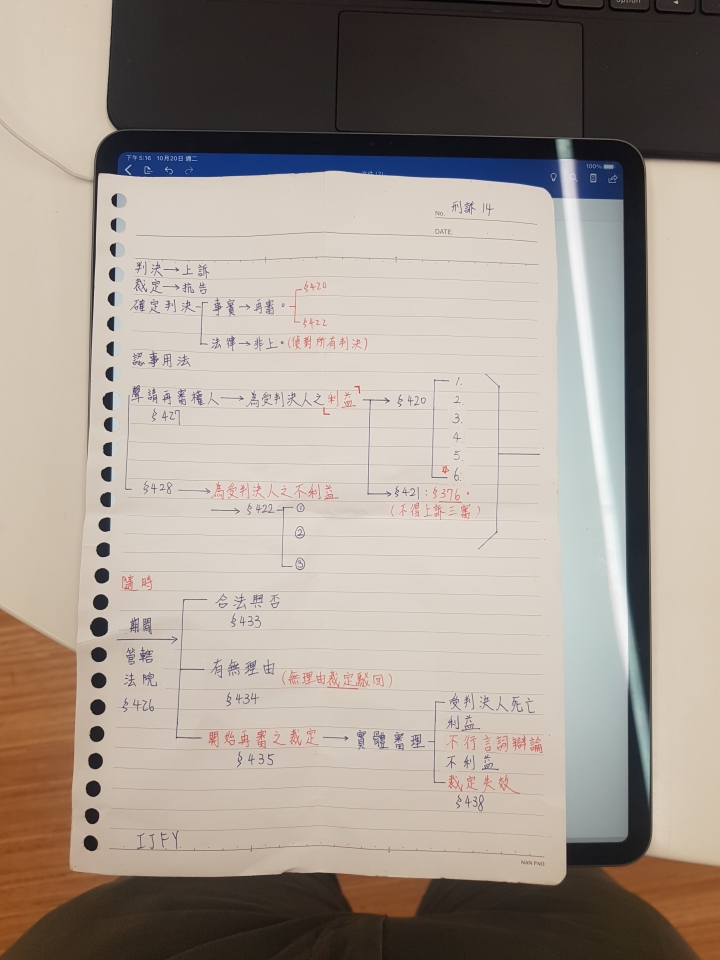 option
下午5:16 10月20日 週二
100%
No. 刑訴 14
DATE.
判決→上訴
裁定→抗告
確定判決 事實→再審。 §420
§422
法律→非上。(使對所有判決)
認事用法
聲請再審權人→為受判決人之「利益」→§420 1.
§427 2.
3.
4.
5.
6.
§428→為受判決人之不利益 →§421:§376。
(不得上訴三審)
→§422 ①
②
③
隨時
期間
管轄
法院
§426
合法與否
§433
有無理由(無理由裁定駁回)
§434
開始再審之裁定→實體審理
§435
受判決人死亡
利益
不行言詞辯論
不利益
裁定失效
§438
IJFY
NAN PAO